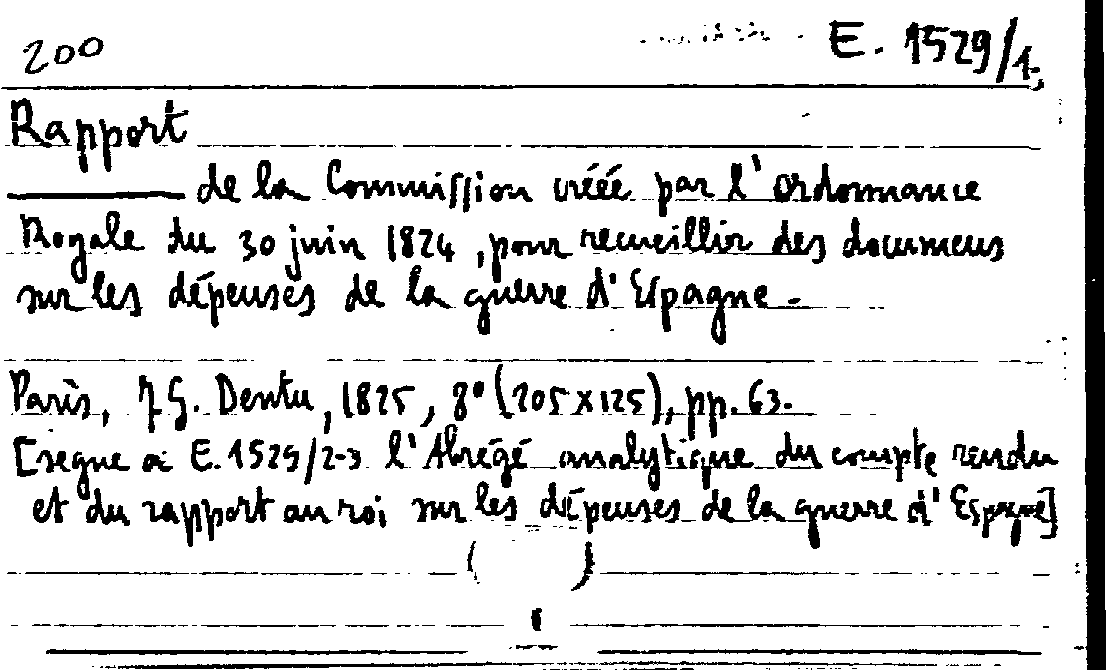 200 E. 1529/1.
Rapport
de la Commission créée par l'Ordonnance
Royale du 30 juin 1824, pour recueillir des documens
sur les dépenses de la guerre d'Espagne.
Paris, J.G. Dentu, 1825, 8° (205 x 125), pp. 63.
[segue a E. 1529/2-3 l'Abrégé analytique du compte rendu
et du rapport au roi sur les dépenses de la guerre d'Espagne]
( )